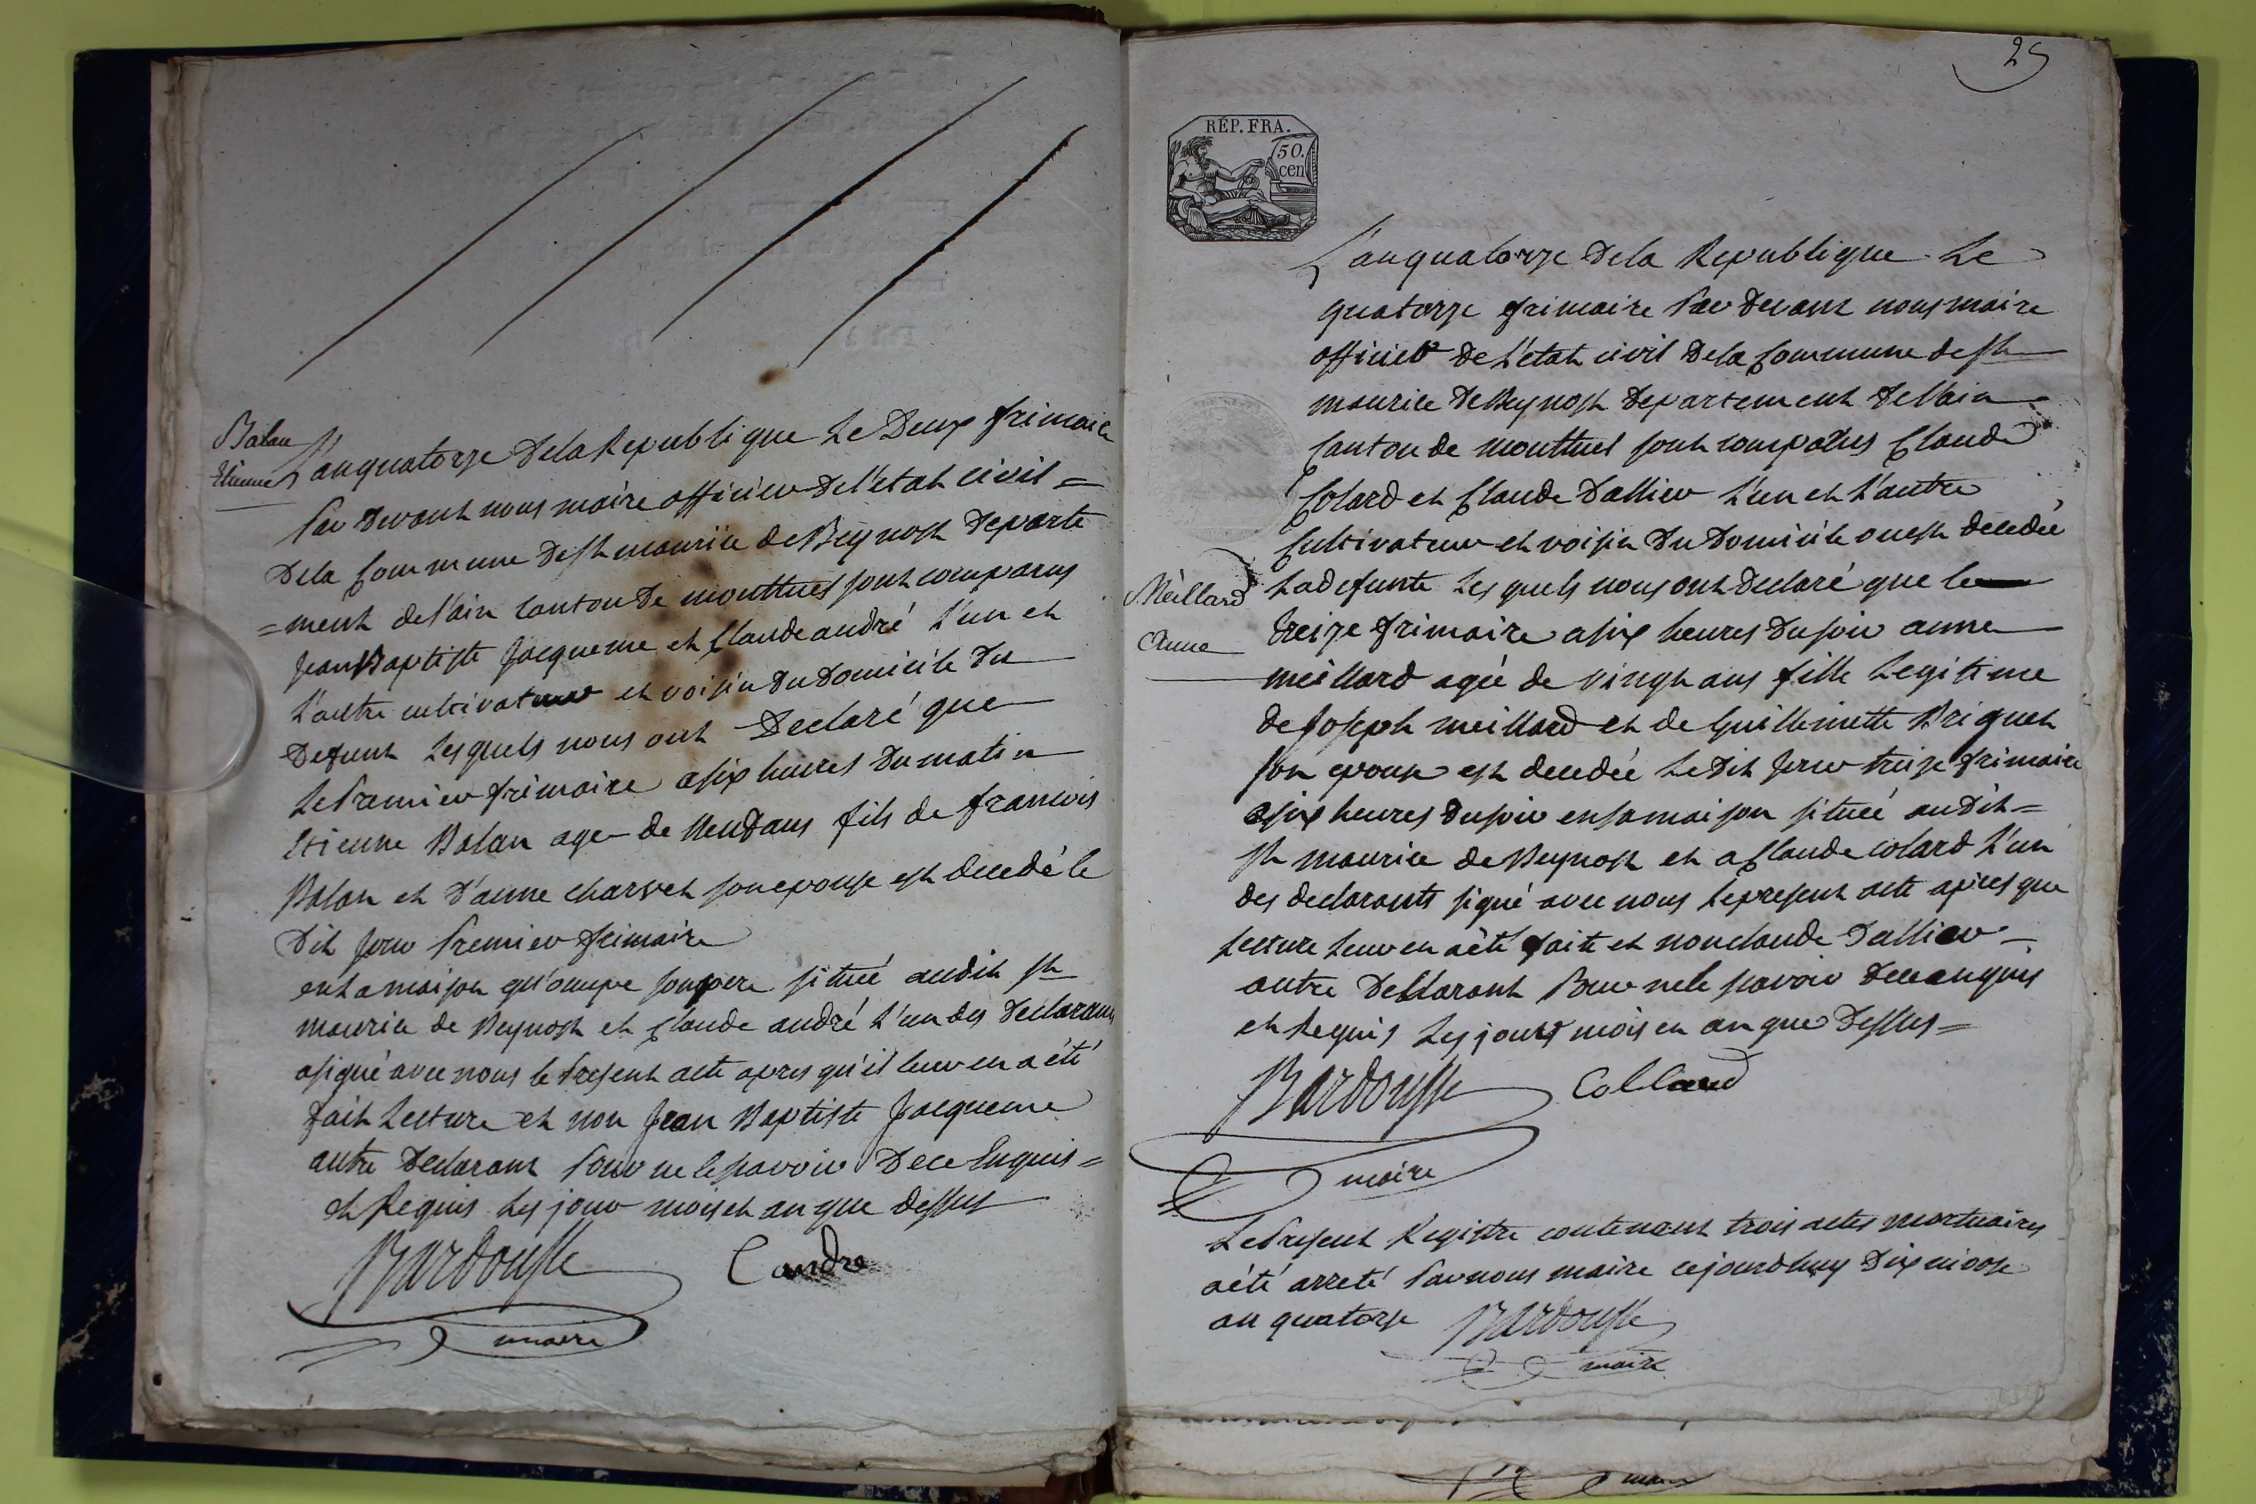 Balan
Etienne
L'an quatorze Dela Republique Le Deux frimaire
Par Devant nous maire officier De l'etat civil =
Dela Commune De St maurice de Beynost Departe
=ment de l'ain canton De montluel sont comparus
Jean Baptiste Jacqueme et Claude andré L'un et
L'autre cultivateur et voisin Du Domicile Du
Defunt Lesquels nous ont Declaré que
Le Premier frimaire a six heures Du matin
Etienne Balan age de neuf ans fils de francois
Balan et D'anne charvet son epouse est decedé le
Dit Jour Premier frimaire
en la maison qu'occupe son pere située audit St
maurice de Beynost et Claude andré L'un des Declarans
a signé avec nous le Present acte apres qu'il leur en a été
fait Lecture et non Jean Baptiste Jacqueme
autre Declarant Pour ne le savoir De ce Enquis =
et Requis Les jour mois et an que dessus
Bardousse C andre
maire
25
RÉP. FRA.
50.
cen
L'an quatorze Dela Republique Le
quatorze frimaire Par Devant nous maire
officier De L'etat civil Dela Commune de St
maurice De Beynost Departement De l'ain
Canton de montluel sont comparus Claude
Colard et Claude Dallier L'un et L'autre
Cultivateur et voisin Du Domicile ou est decedée
La defunte Les quels nous ont Declaré que le
Meillard
Anne
treize frimaire a six heures Du soir anne
meillard agée de vingt ans fille Legitime
de Joseph meillard et de Guillemette Briguet
son epouse est decedée Le Dit Jour treize frimaire
a six heures Du soir en sa maison située au Dit =
St maurice de Beynost et a Claude colard L'un
des declarants signé avec nous Le present acte apres que
Lecture Leur en a été faite et non claude Dallier
autre Declarant Pour ne le savoir De ce anquis
et Requis Les jours mois en an que Dessus =
Bardousse Collard
maire
Le Present Registre contenant trois actes mortuaires
a été arreté Par nous maire cejourd'huy Dix nivose
an quatorze Bardousse
maire